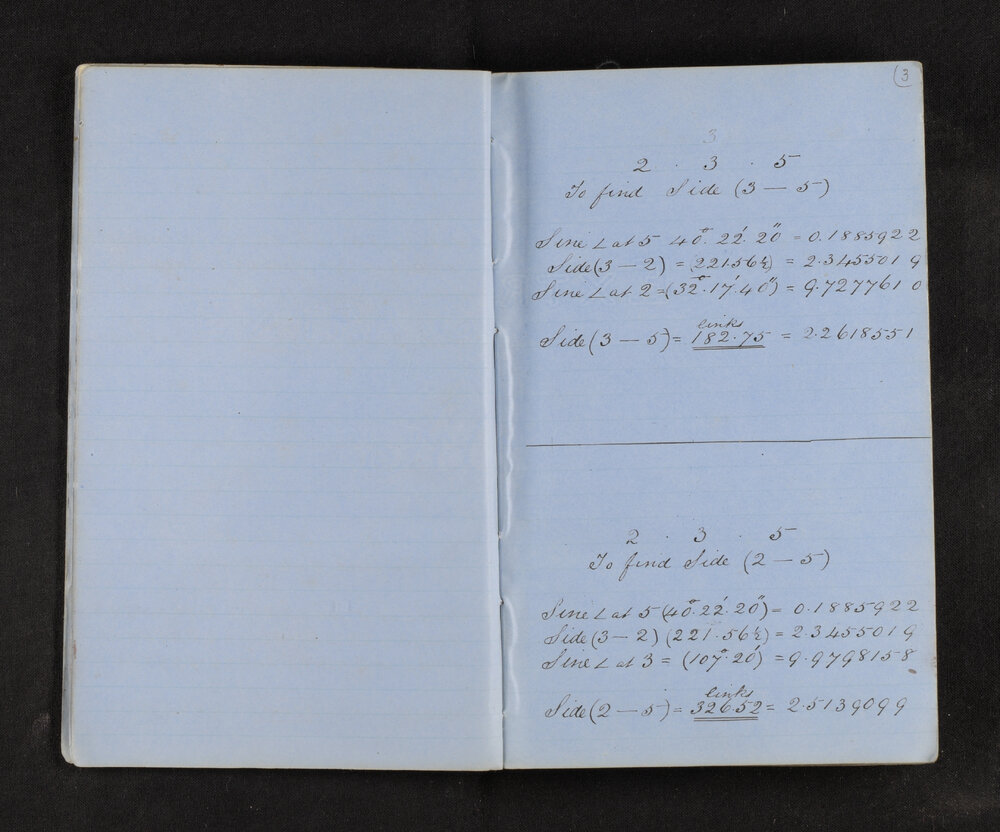 (3
3
2 . 3 . 5
To find Side (3 — 5)
Sine ∠ at 5 40°. 22'. 20" = 0.1885922
Side (3 — 2) = (221.56½) = 2.3455019
Sine ∠ at 2 = (32°. 17'. 40") = 9.7277610
links
Side (3 — 5) = 182.75 = 2.2618551
2 . 3 . 5
To find Side (2 — 5)
Sine ∠ at 5 (40°. 22'. 20") = 0.1885922
Side (3 — 2) (221.56½) = 2.3455019
Sine ∠ at 3 = (107°. 20') = 9.9798158
links
Side (2 — 5) = 326.52 = 2.5139099